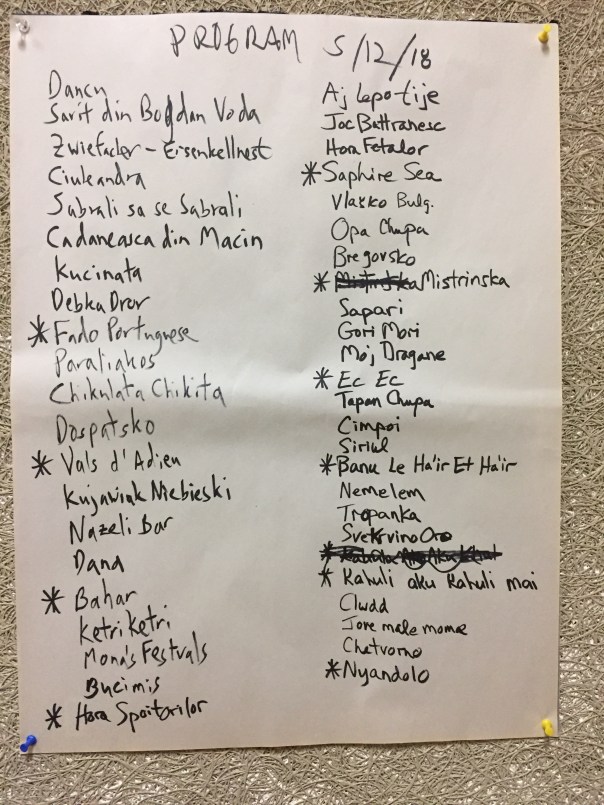 PROGRAM 5/12/18
Dancn
Sarit din Bogdan Voda
Zwiefacher - Eisenkellnest
Ciuleandra
Sabrali sa se Sabrali
Cadaneasca din Macin
Kucinata
Debka Dror
* Fado Portuguese
Paraliakos
Chikulata Chikita
Dospatsko
* Vals d'Adieu
Kujawiak Niebieski
Nazeli Bar
Dana
* Bahar
Ketri Ketri
Mona's Festvals
Bucimis
* Hora Spoitorilor
Aj Lepo tije
Joc Battranesc
Hora Fetelor
* Saphire Sea
Vlasko Bulg.
Opa Chupa
Bregovsko
* Mistrinska
Sapari
Gori Mori
Moj Dragane
* Ec Ec
Tapan Chupa
Cimpoi
Siriul
* Banu Le Ha'ir Et Ha'ir
Nemelem
Tropanka
Svekrvino Oro
*
* Kahuli aku Kahuli mai
Clwdd
Jove male mome
Chetvorno
* Nyandolo